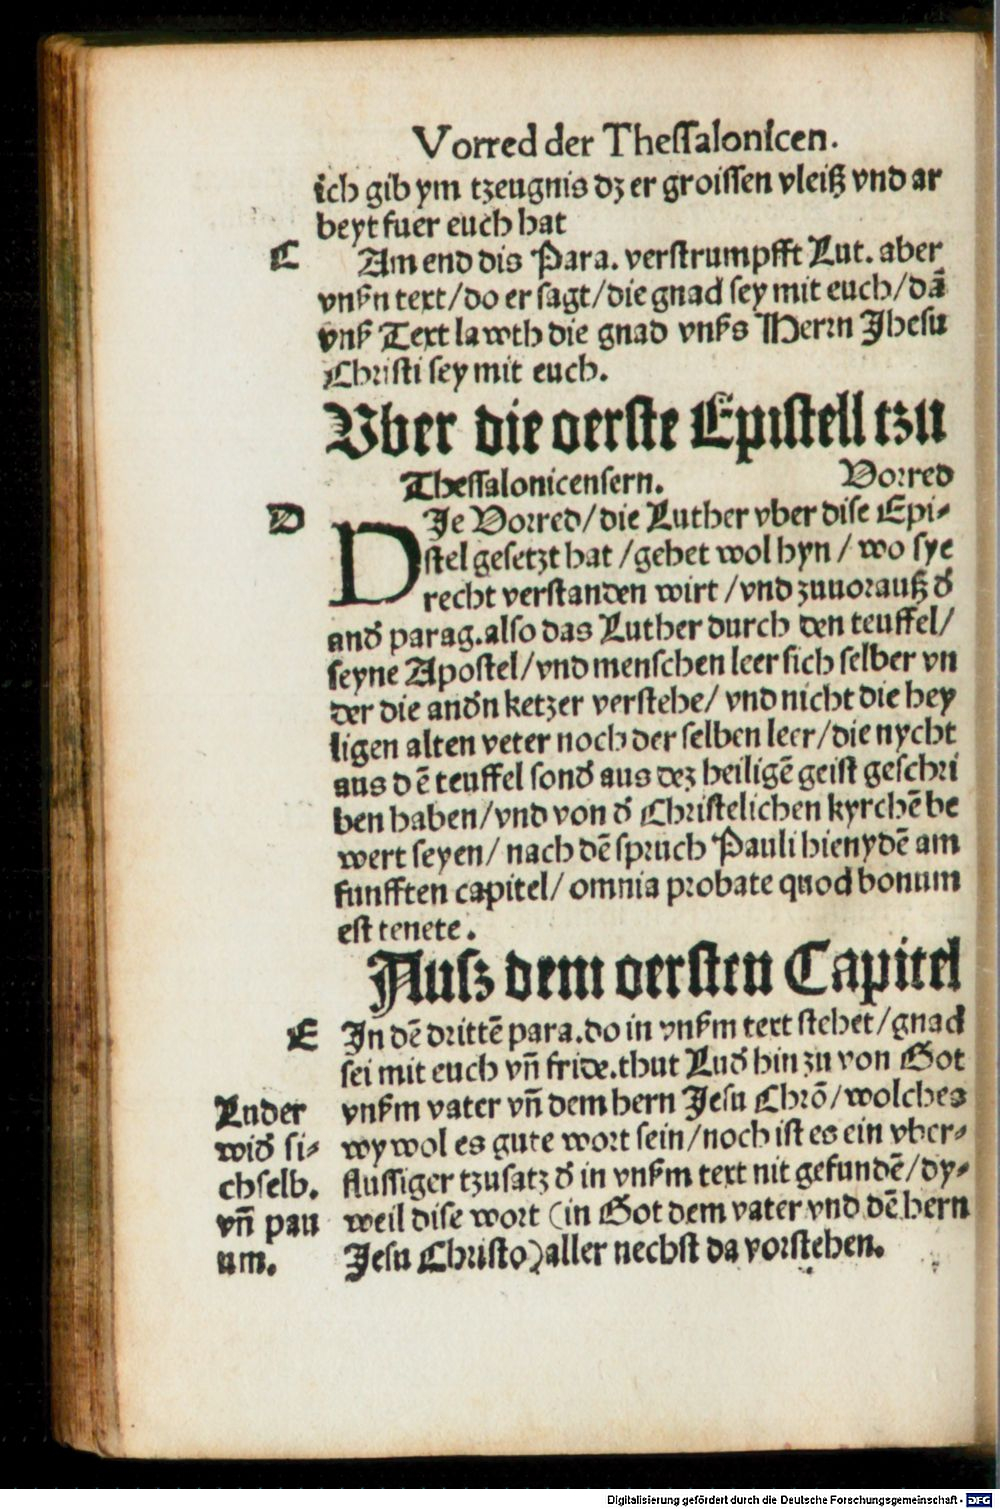 Vorred der Thessalonicen.
ich gib ym tzeugnis dz er groissen vleiß vnd ar
beyt fuer euch hat
C Am end dis Para. verstrumpfft Lut. aber
vnßn text/do er sagt/die gnad sey mit euch/dā
vnß Text lawth die gnad vnßs Herrn Jhesu
Christi sey mit euch.
Vber die oerste Epistell tzu
Thessalonicensern. Vorred
D DJe Vorred/die Luther vber dise Epi-
stel gesetzt hat /gehet wol hyn / wo sye
recht verstanden wirt /vnd zuuorauß d̕
and̕ parag.also das Luther durch den teuffel/
seyne Apostel/vnd menschen leer sich selber vn
der die and̕n ketzer verstehe/ vnd nicht die hey
ligen alten veter noch der selben leer/die nycht
aus dē teuffel sond̕ aus dez heiligē geist geschri
ben haben/vnd von d̕ Christelichen kyrchē be
wert seyen/ nach dē spruch Pauli hienydē am
funfften capitel/ omnia probate quod bonum
est tenete.
Ausz dem oersten Capitel
E Jn dē drittē para.do in vnßm text stehet/gnad
sei mit euch vn̄ fride.thut Lud̕ hin zu von Got
vnßm vater vn̄ dem hern Jesu Chrō/wolches
wy wol es gute wort sein/noch ist es ein vber-
flussiger tzusatz d̕ in vnßm text nit gefundē/dy-
weil dise wort (in Got dem vater vnd dē hern
Jesu Christo) aller nechst da vorstehen.
Luder
wid̕ si-
chselb.
vn̄ pau
um.
Digitalisierung gefördert durch die Deutsche Forschungsgemeinschaft - DFG